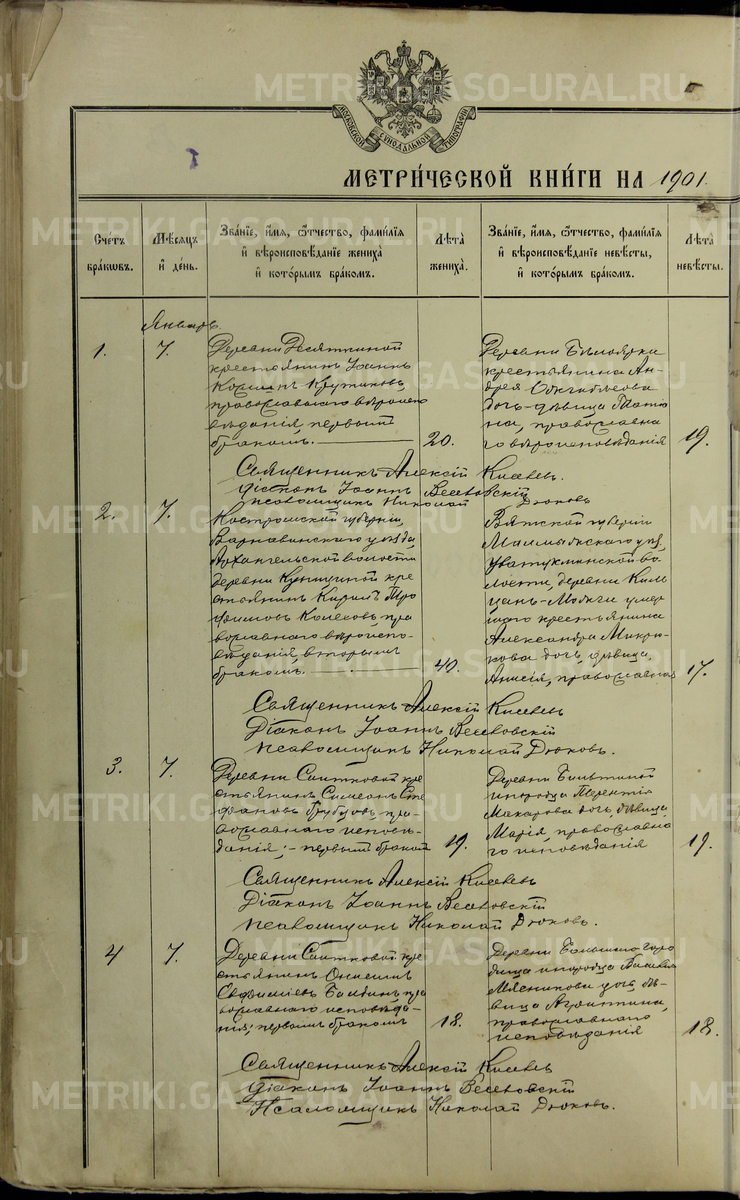 МОСКОВСКОЙ СѴНОДАЛЬНОЙ ТИПОГРАФІИ
МЕТРИ́ЧЕСКОЙ КНИ́ГИ НА 1901.
Сче́тъ бра́ковъ.
Мѣ́сяцъ и҆ де́нь.
Зва́нїе, и҆́мя, ѻ҆́тчество, фами́лїя
и҆ вѣроисповѣ́данїе жениха̀
и҆ кото́рымъ бра́комъ.
Лѣ́та жениха̀.
Зва́нїе, и҆́мя, ѻ҆́тчество, фами́лїя
и҆ вѣроисповѣ́данїе невѣ́сты,
и҆ кото́рымъ бра́комъ.
Лѣ́та невѣ́сты.
Январь
1.
7.
Деревни Десяткиной
крестьянинъ Іоаннъ
Крутиковъ,
православнаго вѣроиспо
вѣданія, первымъ
бракомъ.
20.
Деревни Бѣлоярки
крестьянина Ан-
дрея
дочь-дѣвица Татіа
на, православна
го вѣроисповѣданія
19.
Священникъ Алексій Киселевъ.
Діаконъ Іоаннъ Весновскій
псаломщикъ Николай Дюковъ
2.
7.
Костромской губерніи,
Варнавинскаго уѣзда,
Архангельской волости
деревни кре
стьянинъ Кирилъ Тро
фимовъ Колесовъ, пра
вославнаго вѣроиспо-
вѣданія, вторымъ
бракомъ.
40.
Вятской губерніи
Малмыжскаго уѣз,
во-
лости, деревни
умер
шаго крестьянина
Александра Микрю
кова дочь, дѣвица,
Анисія, православная
17.
Священникъ Алексій Киселевъ
Діаконъ Іоаннъ Весновскій
псаломщикъ Николай Дюковъ.
3.
7.
Деревни Саитковой кре
стьянинъ Симеонъ Сте
фановъ пра-
вославнаго исповѣ-
данія; - первымъ бракомъ
19.
Деревни
инородца Терентія
Макарова дочь, дѣвица,
Марія, православна
го исповѣданія
19.
Священникъ Алексій Киселевъ
Діаконъ Іоаннъ Весновскій
псаломщикъ Николай Дюковъ.
4
7.
Деревни Саитковой кре
стьянинъ Онисимъ
Евфиміевъ пра
вославнаго исповѣда-
нія; первымъ бракомъ
18.
Деревни Большаго горо
дища инородца Василія
Мясникова дочь, дѣ-
вица Агриппина,
православнаго
исповѣданія
18.
Священникъ Алексій Киселевъ
Діаконъ Іоаннъ Весновскій
Псаломщикъ Николай Дюковъ.
METRIKI.GASO-URAL.RU